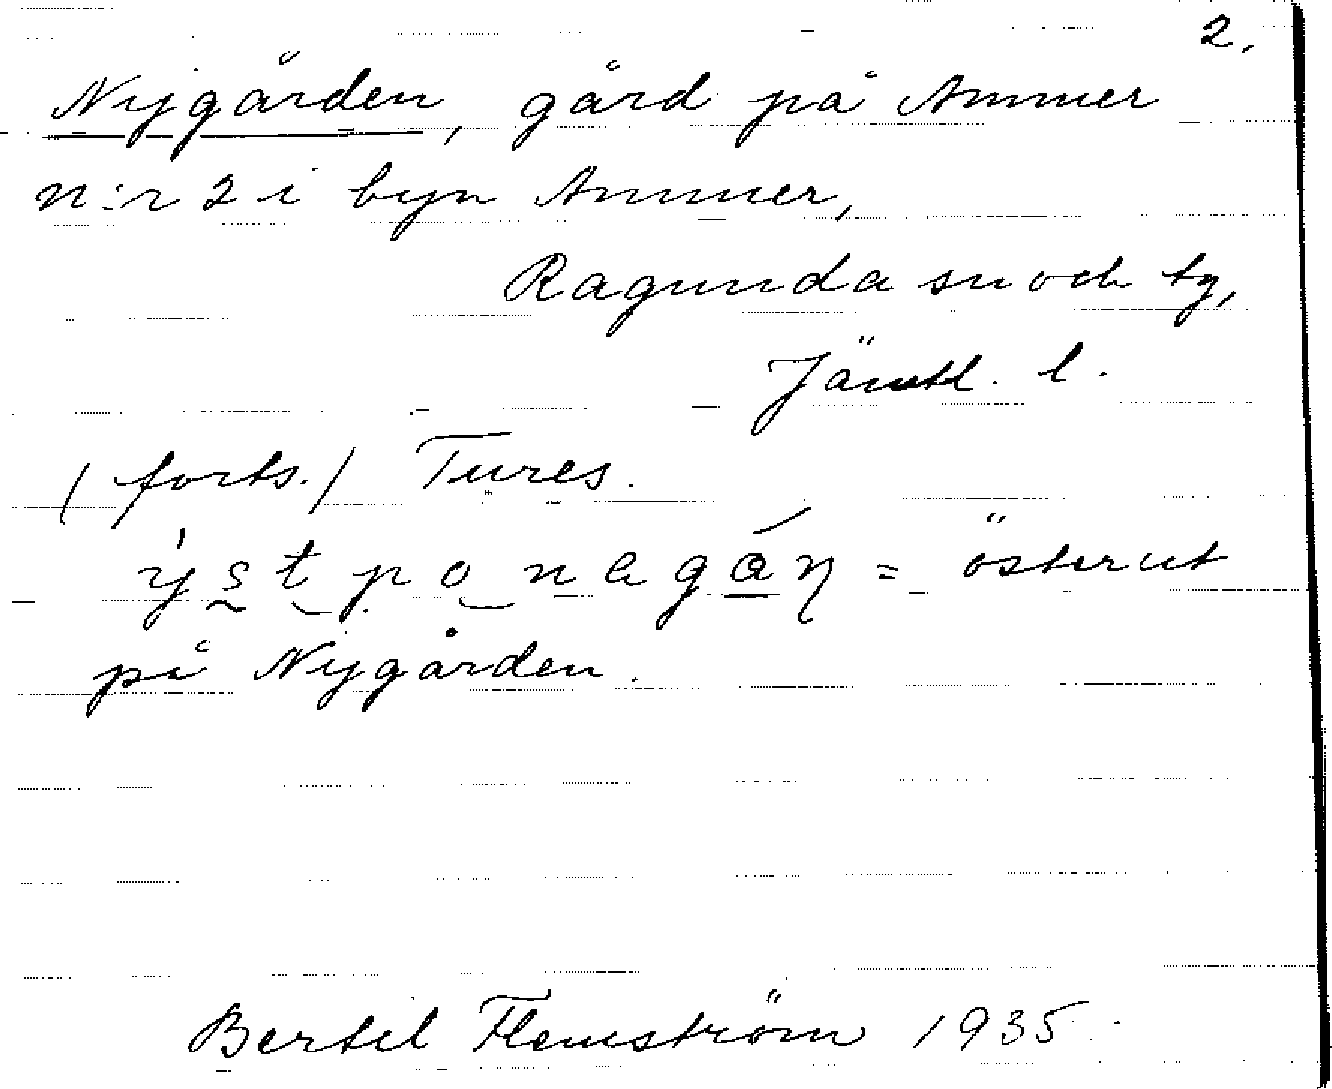 2.
Nygården, gård på Ammer
n:r 2 i byn Ammer,
Ragunda sn och tg,
Jämtl. l.
(forts.) Tures.
ýst po nagáŋ = österut
på Nygården.
Bertil Flemström 1935.